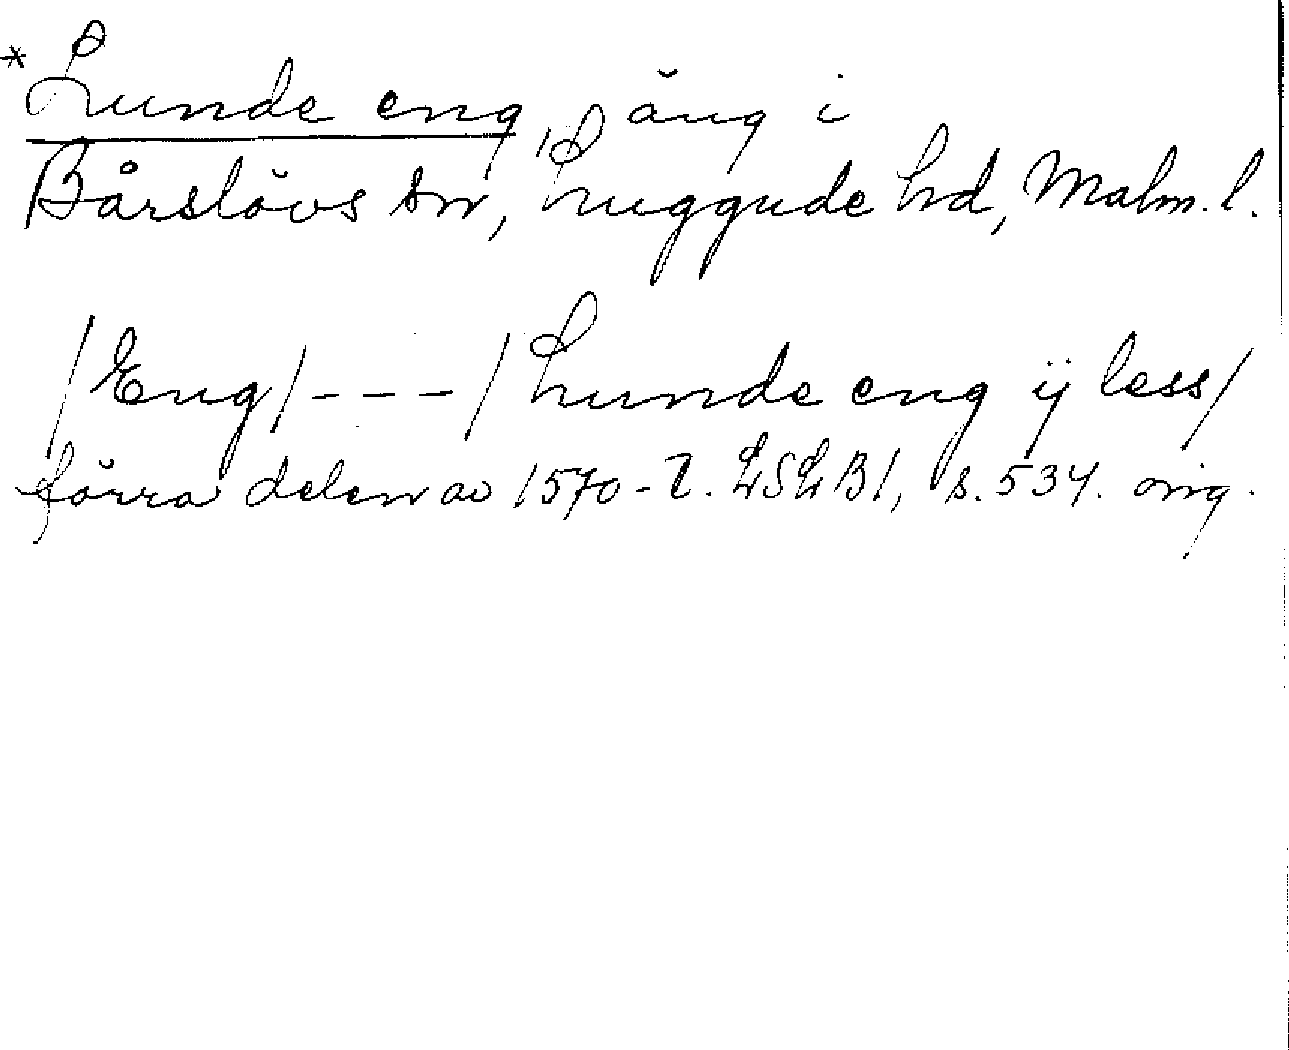 *Lunde eng, äng i
Bårslövs sn, Luggude hd, Malm. l.
/Eng/---/Lunde eng ij less/
förra delen av 1570-t. LSLB1, s. 534. orig.